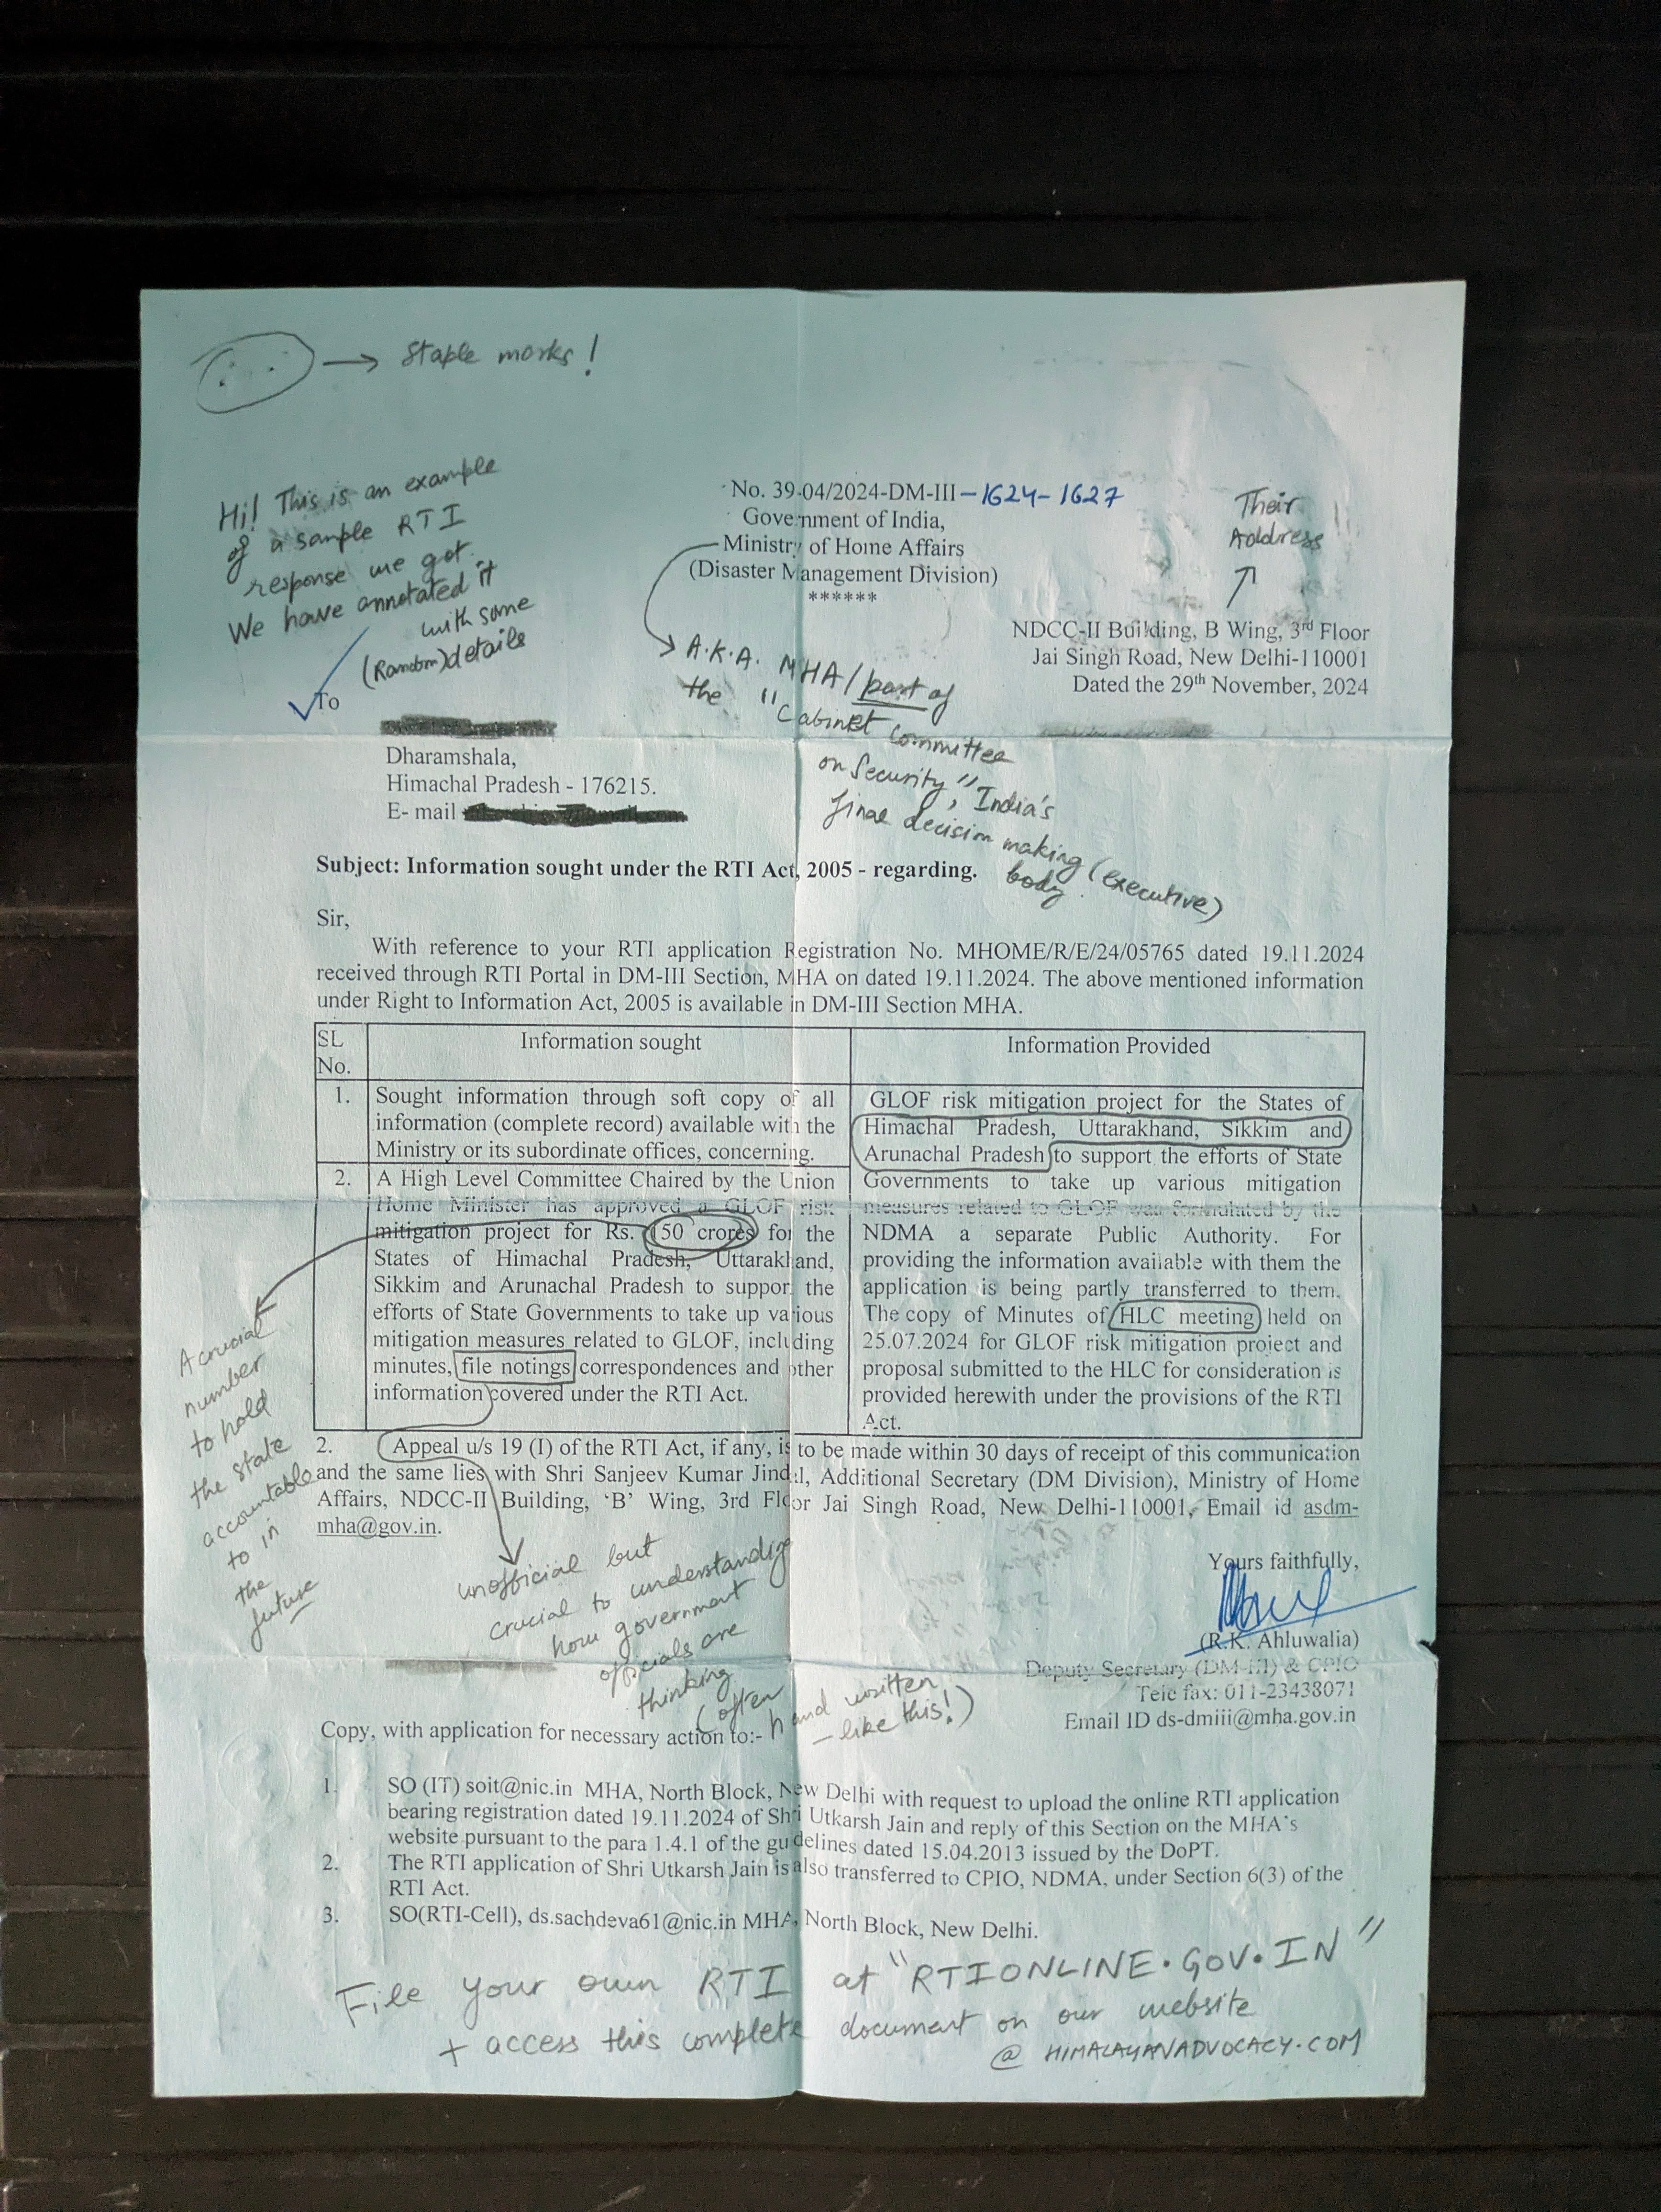 Staple marks!
Hi! This is an example
of a sample RTI
response we got.
We have annotated it
with some
(Random) details
No. 39-04/2024-DM-III-1624-1627
Government of India,
Ministry of Home Affairs
(Disaster Management Division)
******
Their
Address
NDCC-II Building, B Wing, 3rd Floor
Jai Singh Road, New Delhi-110001
Dated the 29th November, 2024
A.K.A. MHA/part of
the "Cabinet Committee
on Security", India's
final decision making (executive)
body.
To
Dharamshala,
Himachal Pradesh - 176215.
E- mail
Subject: Information sought under the RTI Act, 2005 - regarding.
Sir,
With reference to your RTI application Registration No. MHOME/R/E/24/05765 dated 19.11.2024
received through RTI Portal in DM-III Section, MHA on dated 19.11.2024. The above mentioned information
under Right to Information Act, 2005 is available in DM-III Section MHA.
SL
No.
Information sought
Information Provided
1.
Sought information through soft copy of all
information (complete record) available with the
Ministry or its subordinate offices, concerning.
2.
A High Level Committee Chaired by the Union
Home Minister has approved a GLOF risk
mitigation project for Rs. 150 crores for the
States of Himachal Pradesh, Uttarakhand,
Sikkim and Arunachal Pradesh to support the
efforts of State Governments to take up various
mitigation measures related to GLOF, including
minutes, file notings correspondences and other
information covered under the RTI Act.
GLOF risk mitigation project for the States of
Himachal Pradesh, Uttarakhand, Sikkim and
Arunachal Pradesh to support the efforts of State
Governments to take up various mitigation
measures related to GLOF was formulated by the
NDMA a separate Public Authority. For
providing the information available with them the
application is being partly transferred to them.
The copy of Minutes of HLC meeting held on
25.07.2024 for GLOF risk mitigation project and
proposal submitted to the HLC for consideration is
provided herewith under the provisions of the RTI
Act.
A crucial
number
to hold
the state
accountable
to in
the
future
2. Appeal u/s 19 (I) of the RTI Act, if any, is to be made within 30 days of receipt of this communication
and the same lies with Shri Sanjeev Kumar Jindal, Additional Secretary (DM Division), Ministry of Home
Affairs, NDCC-II Building, ‘B’ Wing, 3rd Floor Jai Singh Road, New Delhi-110001, Email id asdm-
mha@gov.in.
unofficial but
crucial to understanding
how government
officials are
thinking
(often hand written
– like this!)
Yours faithfully,
(R.K. Ahluwalia)
Deputy Secretary (DM-III) & CPIO
Tele fax: 011-23438071
Email ID ds-dmiii@mha.gov.in
Copy, with application for necessary action to:-
1. SO (IT) soit@nic.in MHA, North Block, New Delhi with request to upload the online RTI application
bearing registration dated 19.11.2024 of Shri Utkarsh Jain and reply of this Section on the MHA's
website pursuant to the para 1.4.1 of the guidelines dated 15.04.2013 issued by the DoPT.
2. The RTI application of Shri Utkarsh Jain is also transferred to CPIO, NDMA, under Section 6(3) of the
RTI Act.
3. SO(RTI-Cell), ds.sachdeva61@nic.in MHA, North Block, New Delhi.
File your own RTI at "RTIONLINE.GOV.IN"
+ access this complete document on our website
@ HIMALAYANADVOCACY.COM